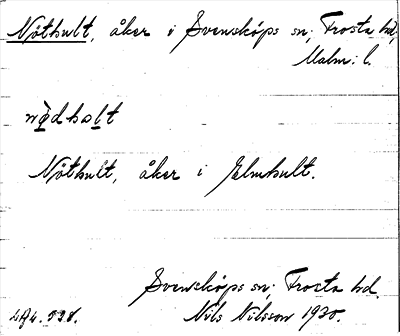 Nöthult, åker i Svensköps sn; Frosta hd,
Malm: l.
nø̀dhɷlt
Nöthult, åker i Elmhult.
Svensköps sn; Frosta hd.
Nils Nilsson 1930.